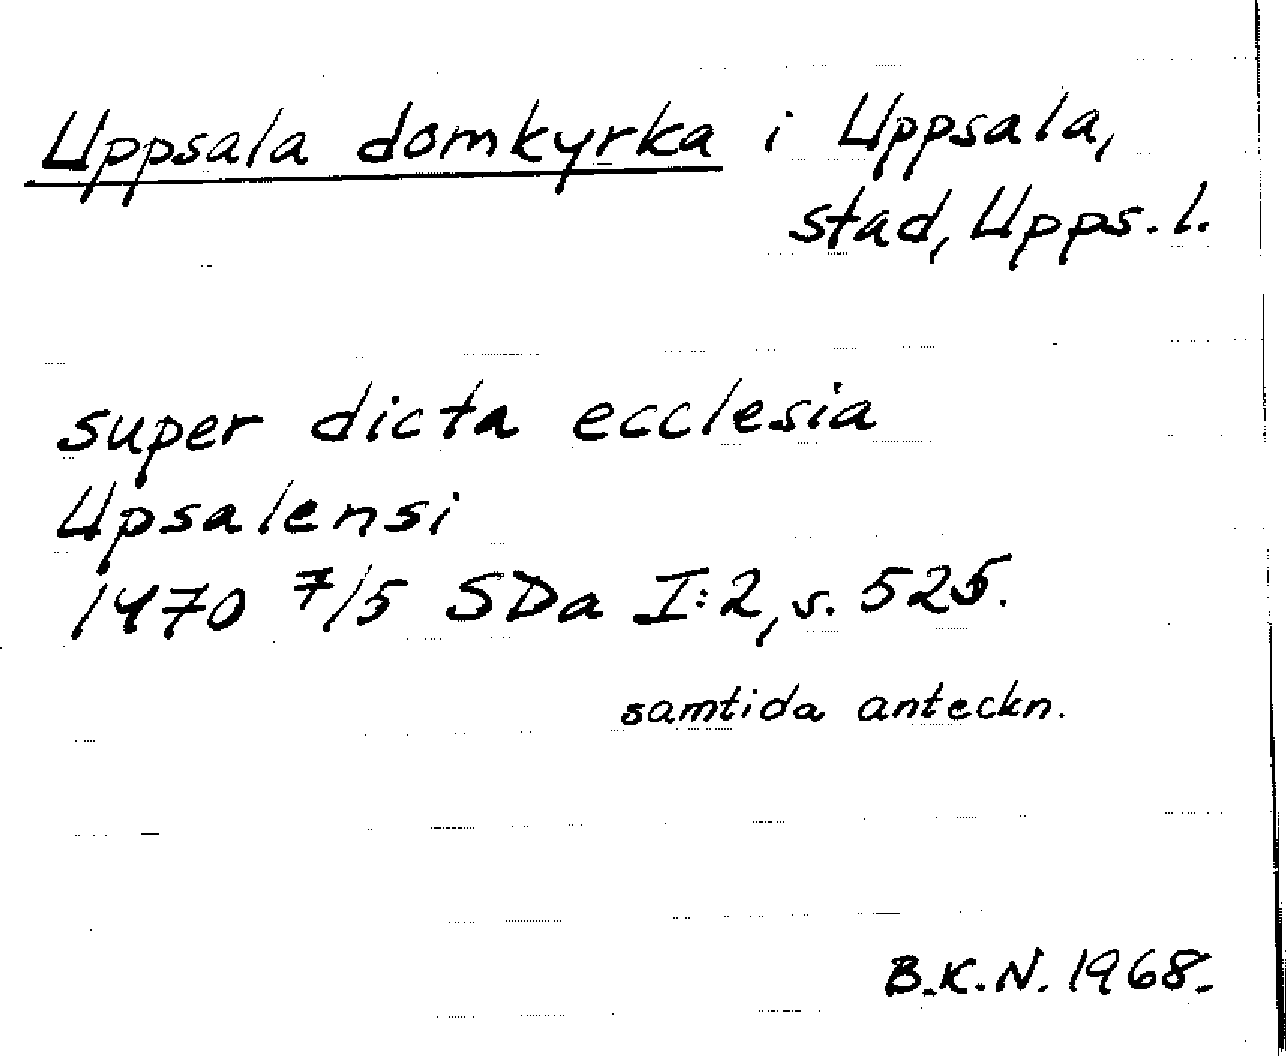 Uppsala domkyrka i Uppsala,
stad, Upps. l.
super dicta ecclesia
Upsalensi
1470 7/5 SDa I:2, s. 525.
samtida anteckn.
B.K.N. 1968.